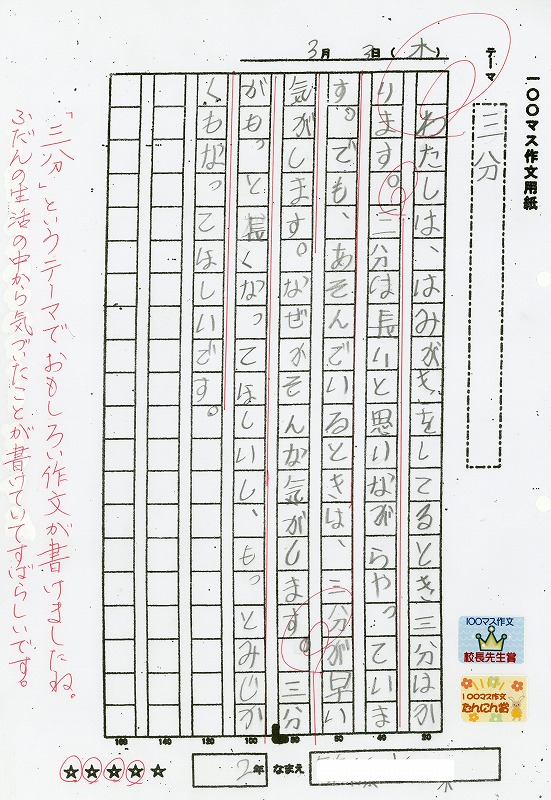 一〇〇マス作文用紙
テーマ
三分
3月3日(木)
わたしは、はみがきをしてるとき三分はか
ります。三分は長いと思いながらやっていま
す。でも、あそんでいるときは、三分が早い
気がします。なぜかそんな気がします。三分
がもっと長くなってほしいし、もっとみじか
くもなってほしいです。
「三分」というテーマでおもしろい作文が書けましたね。
ふだんの生活の中から気づいたことが書けていてすばらしいです。
100マス作文
校長先生賞
100マス作文
たんにん賞
160 140 120 100 80 60 40 20
☆☆☆☆☆
2年 なまえ